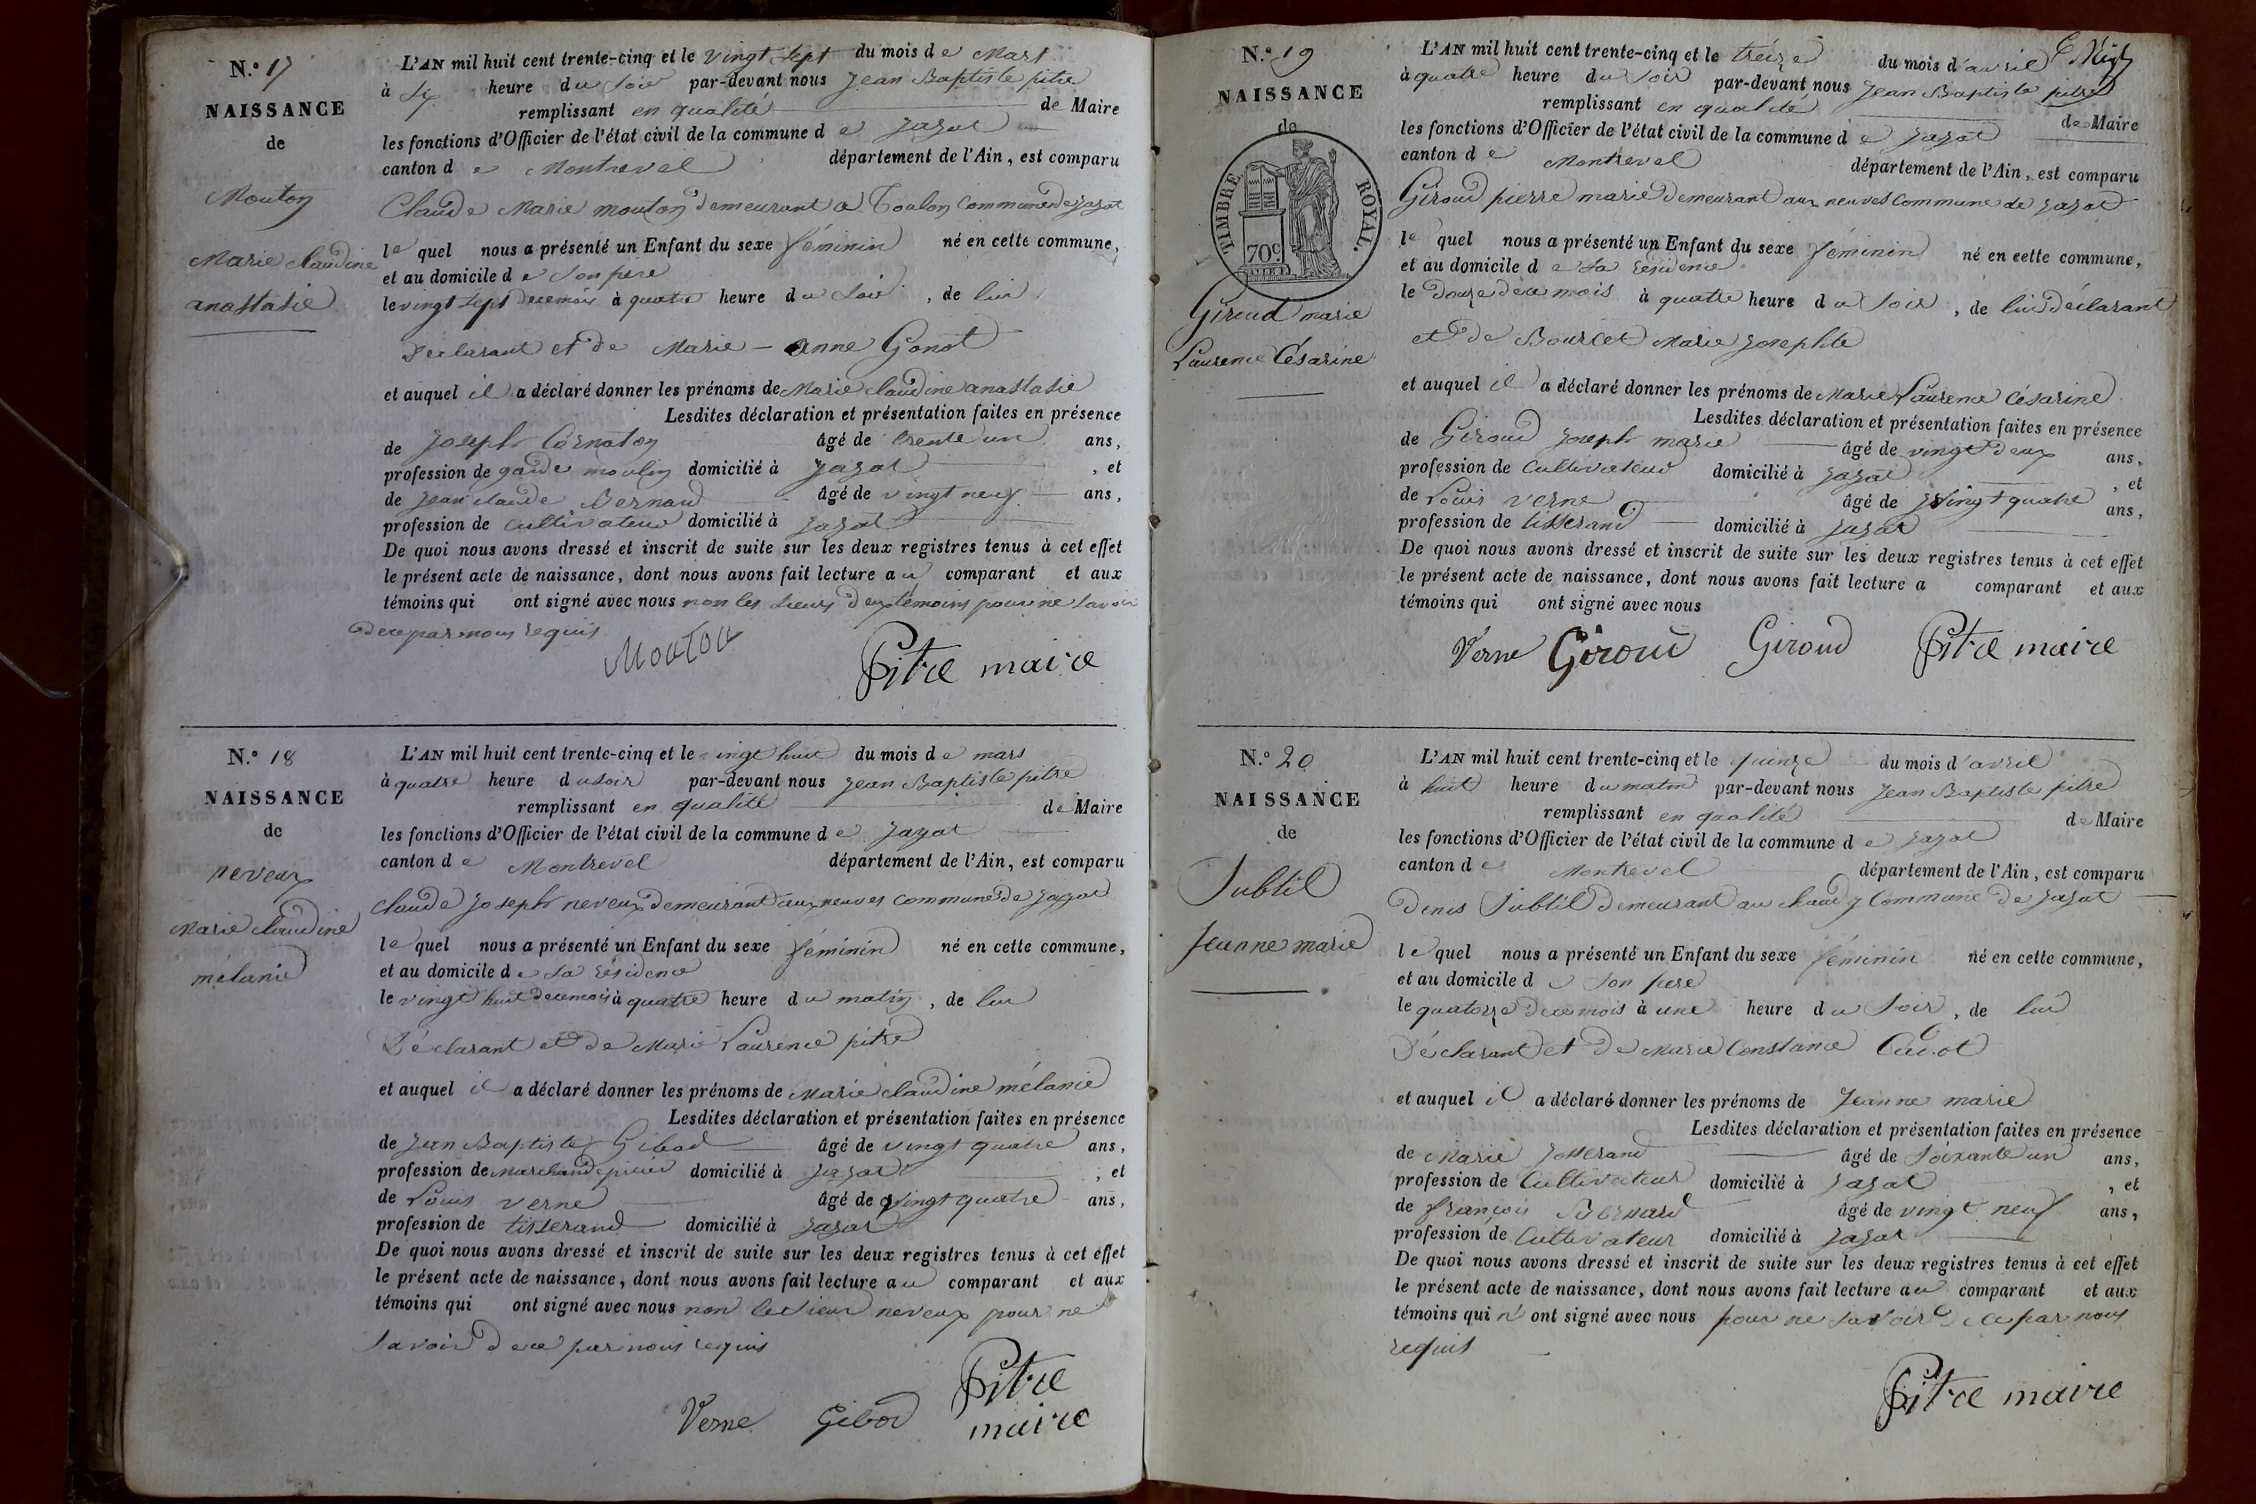 N.° 17
NAISSANCE
de
Mouton
Marie Claudine
anastasie
L'AN mil huit cent trente-cinq et le vingt sept du mois de Mars
à six heure du soir par-devant nous Jean Baptiste pitre
remplissant en qualité de Maire
les fonctions d'Officier de l'état civil de la commune de Jayat
canton de Montrevel département de l'Ain, est comparu
Claude Marie mouton demeurant a Toulon Commune de Jayat
lequel nous a présenté un Enfant du sexe féminin né en cette commune,
et au domicile de son pere
le vingt sept de ce mois à quatre heure du soir, de lui
Déclarant et de Marie-anne Gonot
et auquel il a déclaré donner les prénoms de Marie Claudine anastasie
Lesdites déclaration et présentation faites en présence
de Joseph Cornaton âgé de trente un ans,
profession de garde moulin domicilié à Jayat, et
de Jean Claude Bernard âgé de vingt neuf ans,
profession de cultivateur domicilié à Jayat
De quoi nous avons dressé et inscrit de suite sur les deux registres tenus à cet effet
le présent acte de naissance, dont nous avons fait lecture au comparant et aux
témoins qui ont signé avec nous non les sieurs deux témoins pour ne savoir
de ce par nous requis
Mouton Pitre maire
N.° 18
NAISSANCE
de
neveux
Marie Claudine
mélanie
L'AN mil huit cent trente-cinq et le vingt huit du mois de mars
à quatre heure du soir par-devant nous Jean Baptiste pitre
remplissant en qualité de Maire
les fonctions d'Officier de l'état civil de la commune de Jayat
canton de Montrevel département de l'Ain, est comparu
Claude Joseph neveux demeurant aux neuves commune de Jayat
lequel nous a présenté un Enfant du sexe féminin né en cette commune,
et au domicile de sa résidence
le vingt huit de ce mois à quatre heure du matin, de lui
Déclarant et de Marie Laurence pitre
et auquel il a déclaré donner les prénoms de Marie Claudine mélanie
Lesdites déclaration et présentation faites en présence
de Jean Baptiste Gibod âgé de vingt quatre ans,
profession de Marchand épicier domicilié à Jayat, et
de Louis verne âgé de vingt quatre ans,
profession de tisserand domicilié à Jayat
De quoi nous avons dressé et inscrit de suite sur les deux registres tenus à cet effet
le présent acte de naissance, dont nous avons fait lecture au comparant et aux
témoins qui ont signé avec nous non le sieur neveux pour ne
savoir de ce par nous requis
Verne Gibod Pitre
maire
N.° 19
NAISSANCE
de
TIMBRE ROYAL.
70c.
Giroud marie
Laurence Césarine
L'AN mil huit cent trente-cinq et le treize du mois d'avril
à quatre heure du soir par-devant nous Jean Baptiste pitre
remplissant en qualité de Maire
les fonctions d'Officier de l'état civil de la commune de Jayat
canton de Montrevel département de l'Ain, est comparu
Giroud pierre marie demeurant aux neuves commune de Jayat
lequel nous a présenté un Enfant du sexe féminin né en cette commune,
et au domicile de sa résidence
le douze de ce mois à quatre heure du soir, de lui déclarant
et de Bourcet Marie Josephte
et auquel il a déclaré donner les prénoms de Marie Laurence Césarine
Lesdites déclaration et présentation faites en présence
de Giroud Joseph marie âgé de vingt deux ans,
profession de Cultivateur domicilié à Jayat, et
de Louis verne âgé de vingt quatre ans,
profession de tisserand domicilié à Jayat
De quoi nous avons dressé et inscrit de suite sur les deux registres tenus à cet effet
le présent acte de naissance, dont nous avons fait lecture a comparant et aux
témoins qui ont signé avec nous
Verne Giroud Giroud Pitre maire
N.° 20
NAISSANCE
de
Subtil
Jeanne marie
L'AN mil huit cent trente-cinq et le quinze du mois d'avril
à huit heure du matin par-devant nous Jean Baptiste pitre
remplissant en qualité de Maire
les fonctions d'Officier de l'état civil de la commune de Jayat
canton de Montrevel département de l'Ain, est comparu
Denis Subtil demeurant au Commune de Jayat
lequel nous a présenté un Enfant du sexe féminin né en cette commune,
et au domicile de son pere
le quatorze de ce mois à une heure du soir, de lui
Déclarant et de Marie Constance
et auquel il a déclaré donner les prénoms de Jeanne marie
Lesdites déclaration et présentation faites en présence
de Marie Josserand âgé de soixante un ans,
profession de Cultivateur domicilié à Jayat, et
de françois Bernard âgé de vingt neuf ans,
profession de Cultivateur domicilié à Jayat
De quoi nous avons dressé et inscrit de suite sur les deux registres tenus à cet effet
le présent acte de naissance, dont nous avons fait lecture au comparant et aux
témoins qui n'ont signé avec nous pour ne savoir de ce par nous
requis
Pitre maire